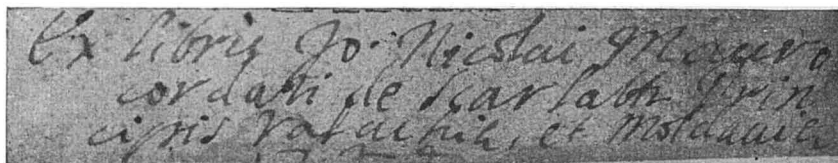 Ex libris Jo. Nicolai Mauro
cordati de Scarlatti Prin
cipis Valachiae, et Moldaviae